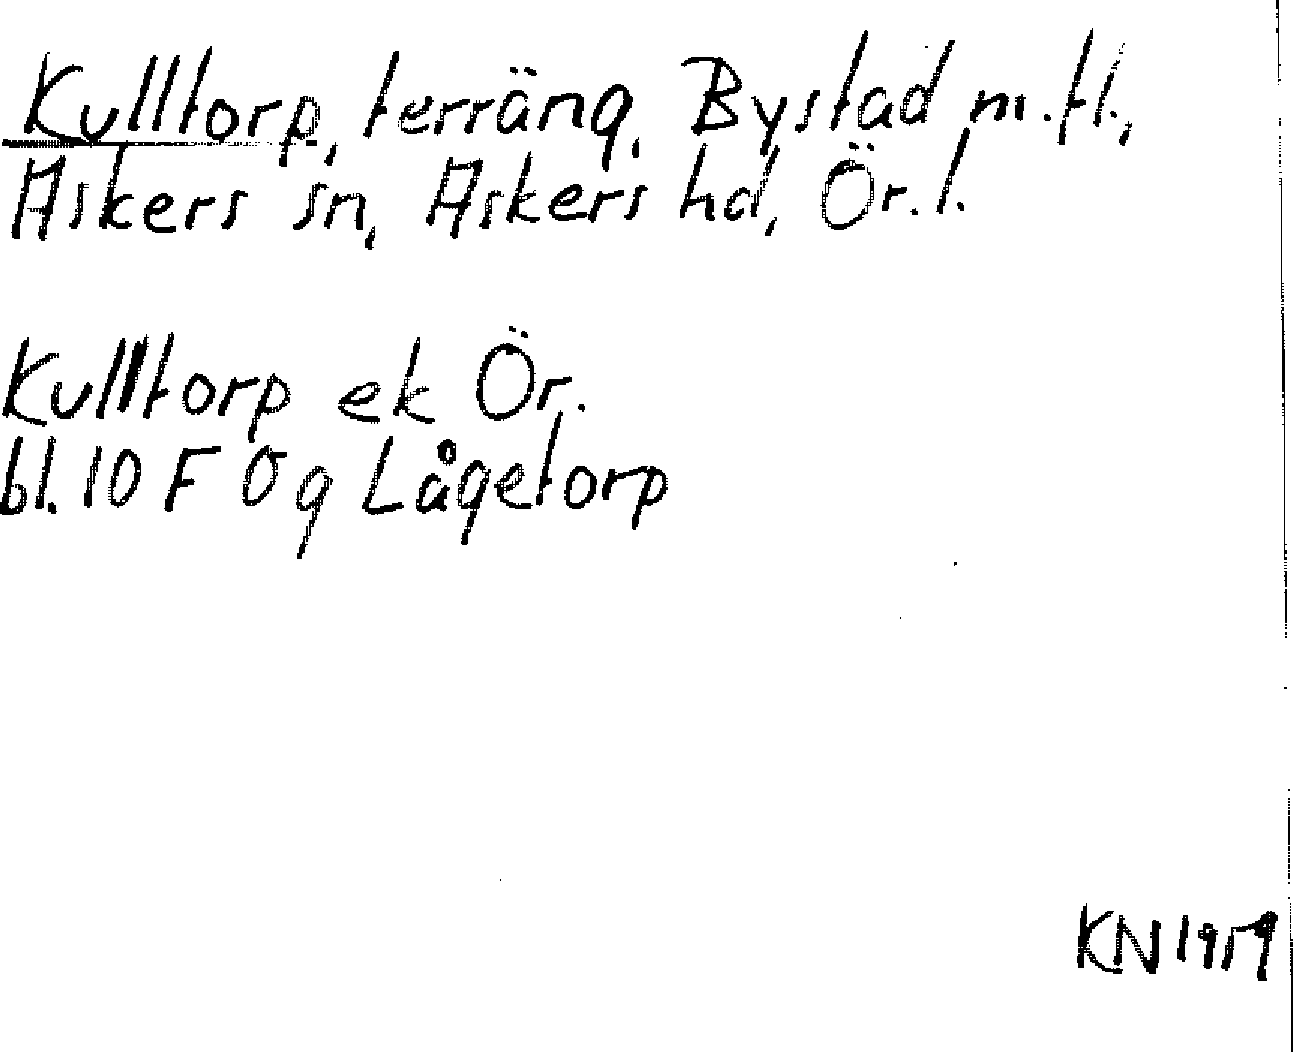 Kulltorp, terräng, Bystad m.fl.,
Askers sn, Askers hd, Ör.l.
Kulltorp ek Ör.
bl. 10 F 0 g Lågetorp
KN 1959